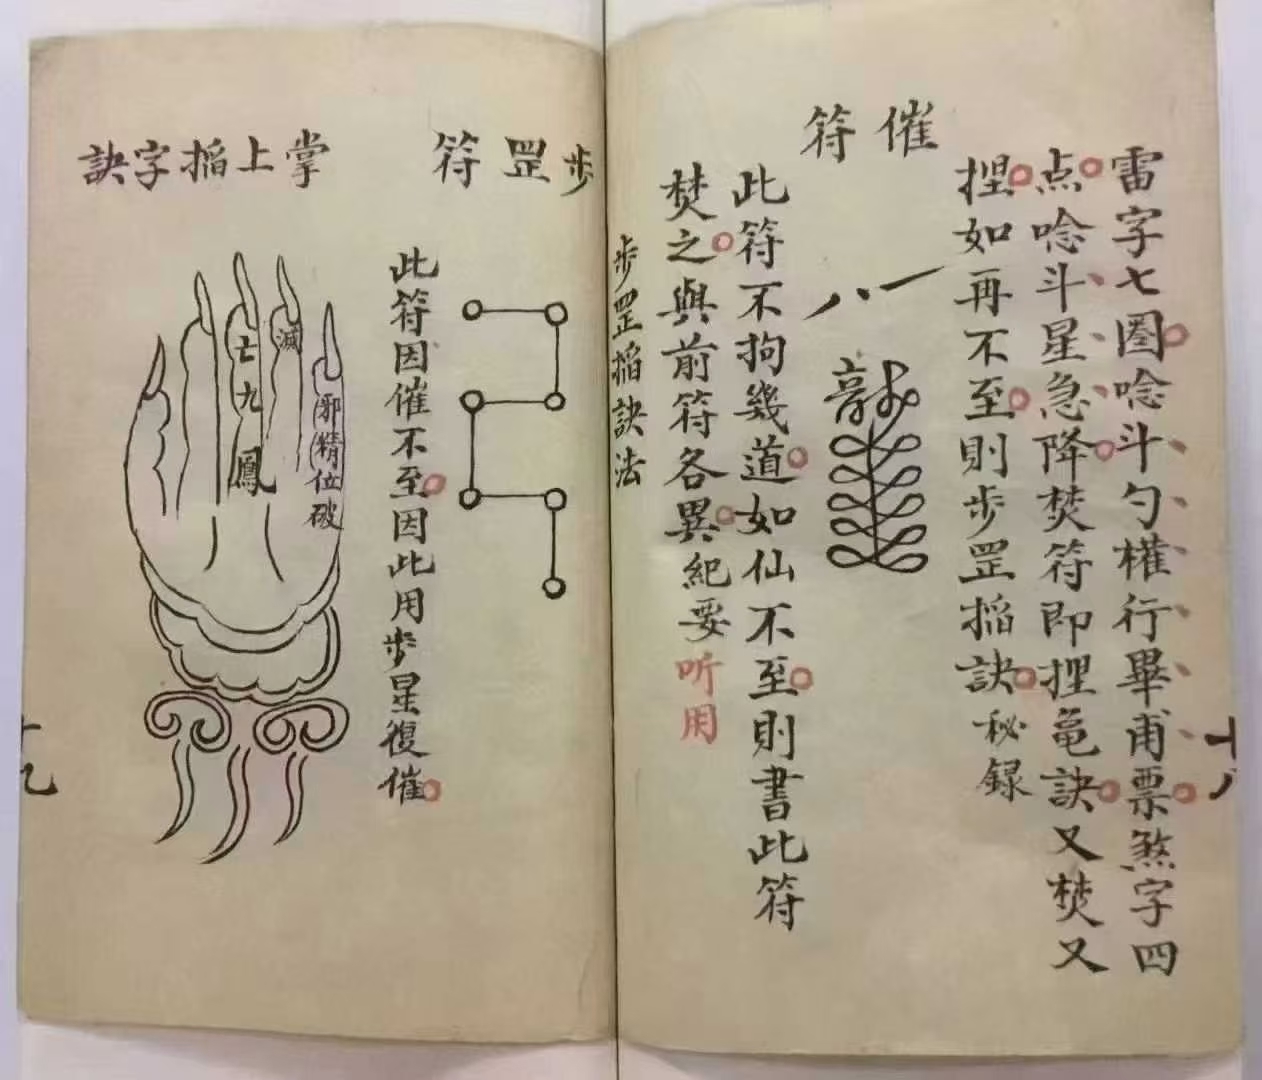 雷字七圈唸斗勺權行畢甫票煞字四
点唸斗星急降焚符即捏龟訣又焚又
捏如再不至則步罡掐訣秘録
催符
此符不拘幾道如仙不至則書此符
焚之與前符各異紀要听用
十八
步罡掐訣法
步罡符
此符因催不至因此用步星復催
掌上掐字訣
邪精位破
滅
亡九鳳
十九